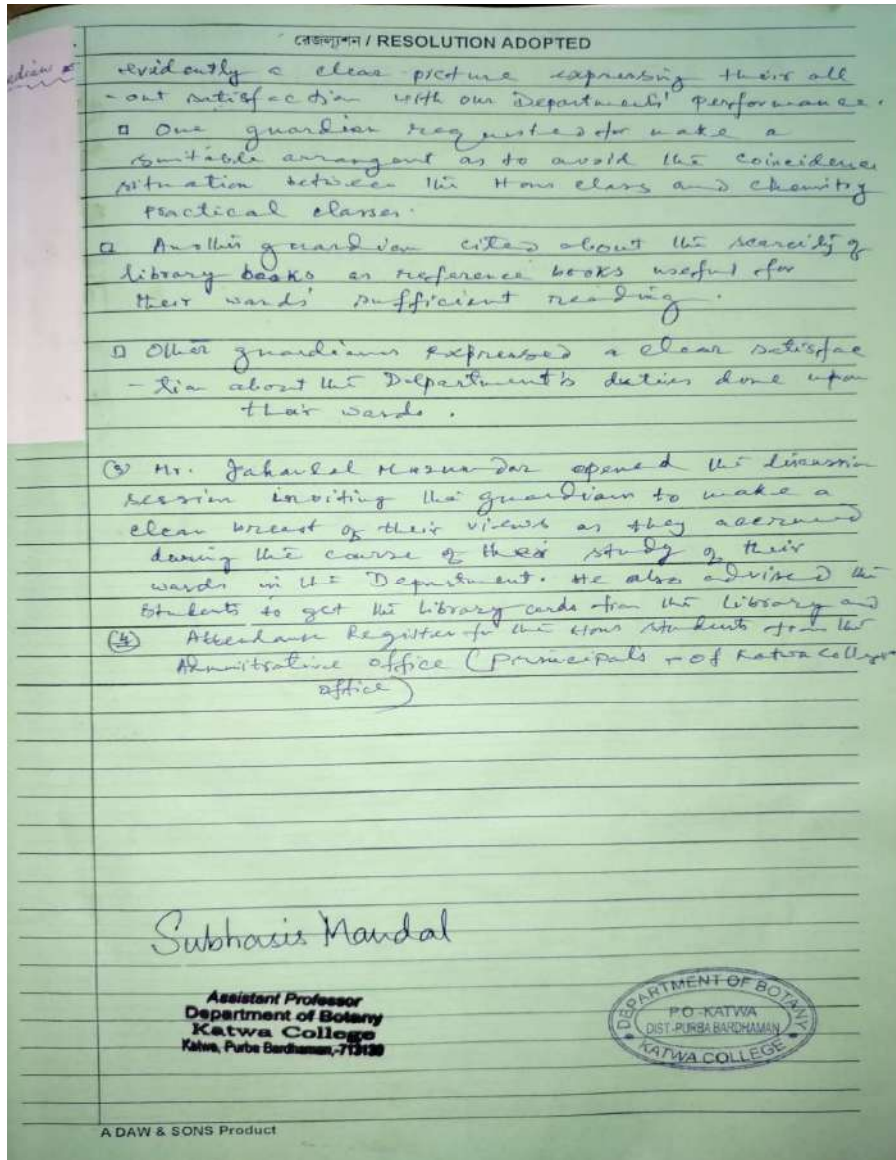 রেজল্যুশন / RESOLUTION ADOPTED
evidently a clear picture expressing their all
-out satisfaction with our Departments' performance.
One guardian requested for make a
suitable arrangent as to avoid the coincidence
situation between the Hons class and chemistry
practical classes.
Another guardian cited about the scarcity of
library books as reference books useful for
their wards' sufficient reading.
Other guardians expressed a clear satisfac
-tion about the Department's duties done upon
their wards.
(3) Mr. opened the discussion
session inviting the guardians to make a
clean breast of their views as they accrued
during the course of their study of their
wards in the Department. He also advised the
students to get the library cards from the library and
(4) Attendance Register for the Hons students from the
Administrative office (Principal's - of Katwa College
office)
Subhasis Mandal
Assistant Professor
Department of Botany
Katwa College
Katwa, Purba Bardhaman,-713130
DEPARTMENT OF BOTANY
P.O-KATWA
DIST-PURBA BARDHAMAN
KATWA COLLEGE
A DAW & SONS Product